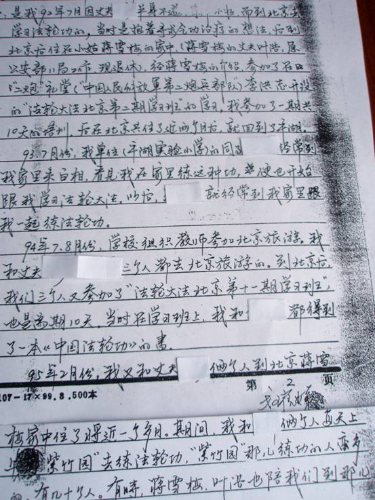 是我92年7月因丈夫 半身不遂 小姑 而到北京去
学习法轮功的，当时是抱着寻求为治疗的想法，后到
北京后住在小姑蒋雪梅的家中(蒋雪梅的丈夫叶浩，原
公安部11局工作，现退休)，经蒋雪梅的介绍，参加了在由
"二炮"礼堂("中国人民解放军第二炮兵部队)李洪志开设
的"法轮大法北京第二期学习班"的学习，我参加了一期共
10天的培训，后在北京共住了近两个月后，就回到了平湖。
93年7月份，我单位(平湖实验小学)的同 经常到
我家里来白相，看见我在家里练这种功，她便也开始
跟我学习法轮大法。以后， 就经常到我家里跟
我一起练法轮功。
94年7.8月份，学校组织教师参加北京旅游。我
和丈夫 三个人都去北京旅游的。到北京后，
我们三个人又参加了"法轮大法北京第十一期学习班"，
也是为期10天，当时在学习班上，我和 都得到
了一本《中国法轮功》的书。
95年2月份，我又和丈夫 俩个人到北京蒋雪
第 2 页
107-17×99.8,500本
梅家中住了将近一个多月。期间，我和 俩个人每天上
"紫竹园"去练法轮功，"紫竹园"那儿练功的人蛮多
有几十个人。有时，蒋雪梅、叶浩也陪我们到那儿